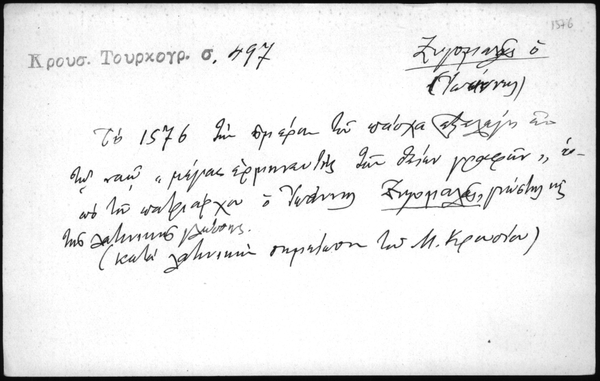 1576
Κρουσ. Τουρκογρ. σ. 497
Ζυγομαλᾶς ὁ
(Ἰωάννης)
Τὸ 1576 τὴν ἡμέραν τοῦ πάσχα ἐξελέγη ἐπὶ
τοῦ ναοῦ „μέγας ἑρμηνευτὴς τῶν θείων γραφῶν„ ὑ-
πὸ τοῦ πατριάρχου ὁ Ἰωάννης Ζυγομαλᾶς, γνώστης
τῆς λατινικῆς γλώσσης.
(κατὰ λατινικὴν σημείωσιν τοῦ Μ. Κρουσίου)